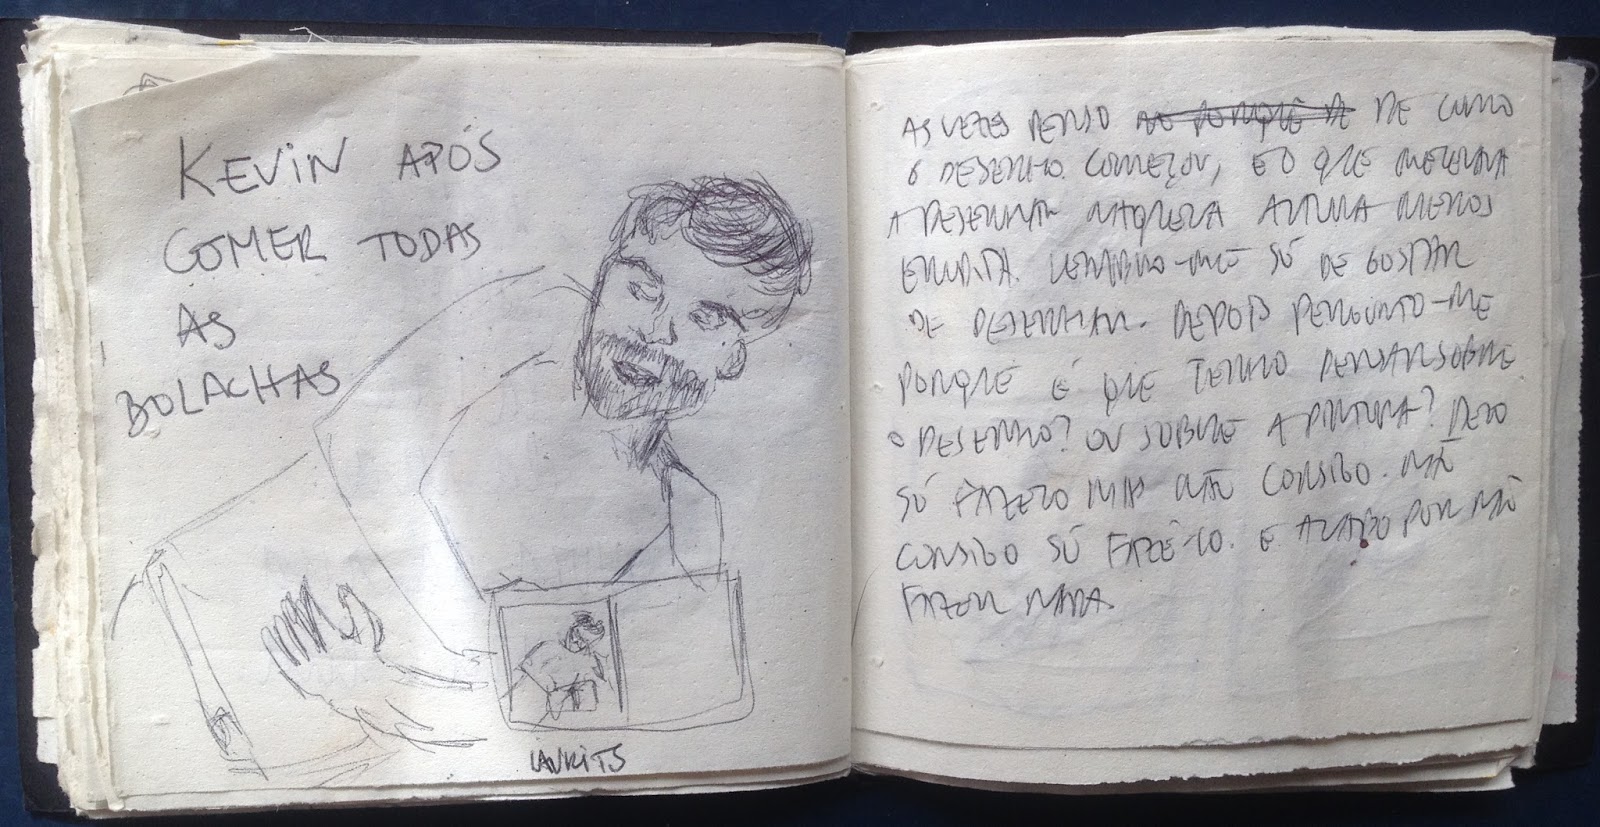 KEVIN APÓS
COMER TODAS
AS
BOLACHAS
LAURITS
AS VEZES PENSO NO PORQUÊ DE DE COMO
O DESENHO COMEÇOU, E O QUE ME LEVAVA
A DESENHAR NAQUELA ALTURA MENOS
ERUDITA. LEMBRO-ME SÓ DE GOSTAR
DE DESENHAR. DEPOIS PERGUNTO-ME
PORQUE É QUE TENHO PENSAR SOBRE
O DESENHO? OU SOBRE A PINTURA? DEVO
SÓ FAZE-LO MAS NÃO CONSIGO. NÃO
CONSIGO SÓ FAZÊ-LO. E ACABO POR NÃO
FAZER NADA.